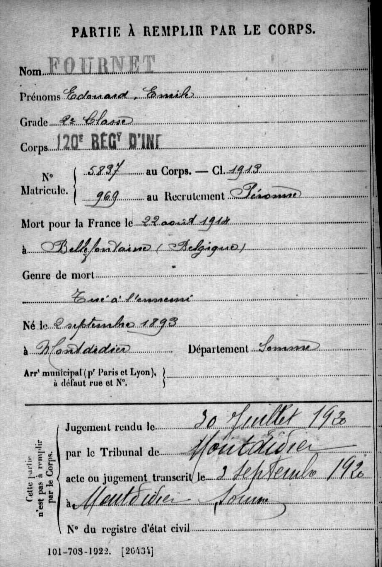 PARTIE À REMPLIR PAR LE CORPS.
Nom FOURNET
Prénoms Edouard, Emile
Grade 2e Classe
Corps 120e RÉGt D'INF
N° Matricule. { 5897 au Corps. — Cl. 1913
969 au Recrutement Péronne
Mort pour la France le 22 août 1914
à Bellefontaine (Belgique)
Genre de mort
Tué à l'ennemi
Né le 2 septembre 1893
à Montdidier Département Somme
Arrt municipal (pr Paris et Lyon), à défaut rue et N°. }
Cette partie n'est pas à remplir par le Corps.
Jugement rendu le 30 Juillet 1920
par le Tribunal de Montdidier
acte ou jugement transcrit le 2 Septembre 1920
à Montdidier Somme
N° du registre d'état civil
101-708-1922. [26434]